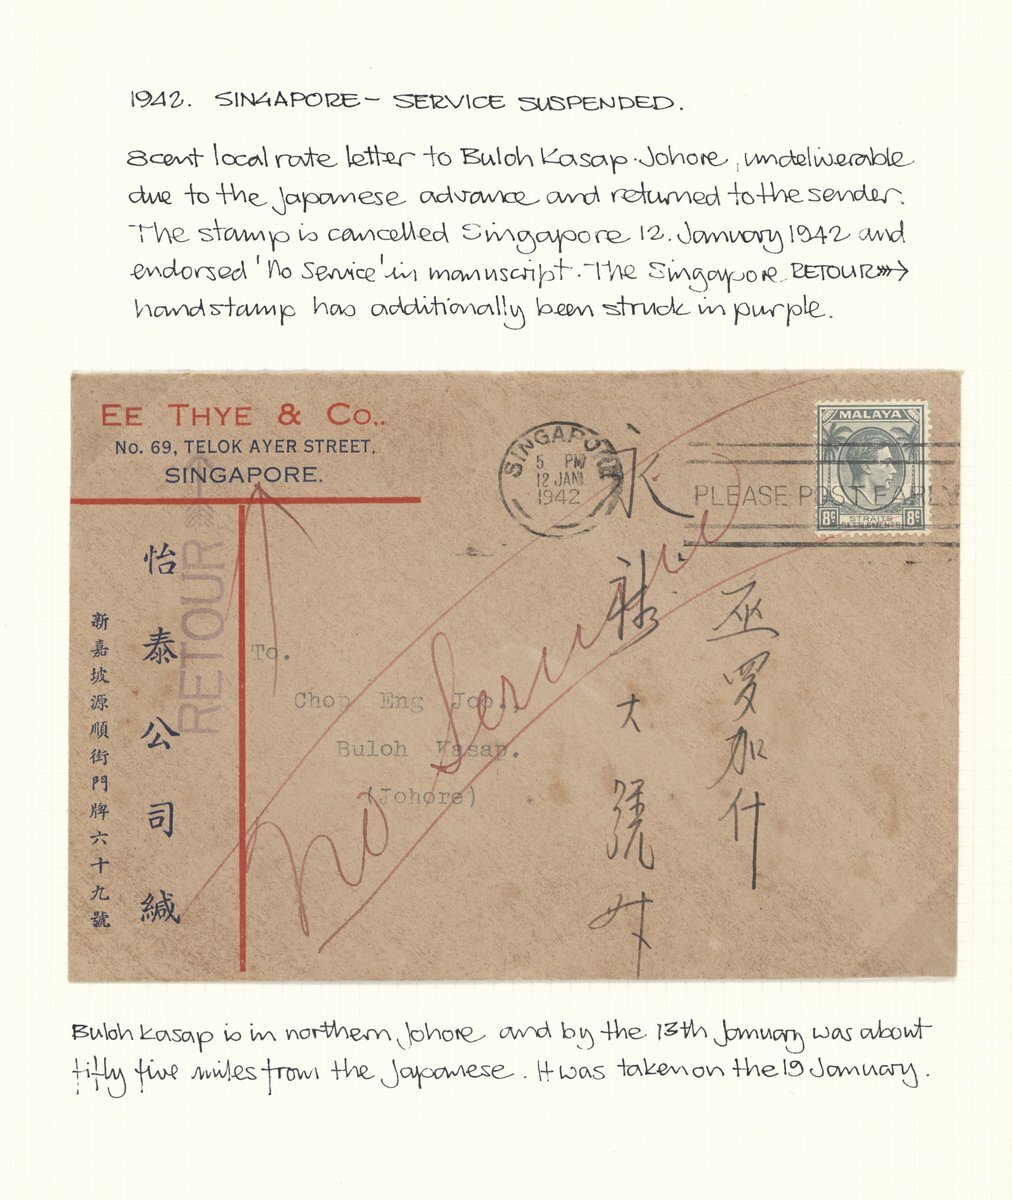 1942. SINGAPORE - SERVICE SUSPENDED.
8 cent local rate letter to Buloh Kasap. Johore, undeliverable
due to the Japanese advance and returned to the sender.
The stamp is cancelled Singapore 12. January 1942 and
endorsed 'No Service' in manuscript. The Singapore RETOUR
handstamp has additionally been struck in purple.
EE THYE & Co,.
No. 69, TELOK AYER STREET,
SINGAPORE.
SINGAPORE
5 PM
12 JAN
1942
PLEASE POST EARLY
MALAYA
8c STRAITS SETTLEMENTS 8c
RETOUR
怡泰公司緘
新嘉坡源順街門牌六十九號
To.
Chop Eng Joo.,
Buloh Kasap.
(Johore)
No Service
巫罗加什
永
大號
Buloh Kasap is in northern Johore and by the 13th January was about
fifty five miles from the Japanese. It was taken on the 19 January.